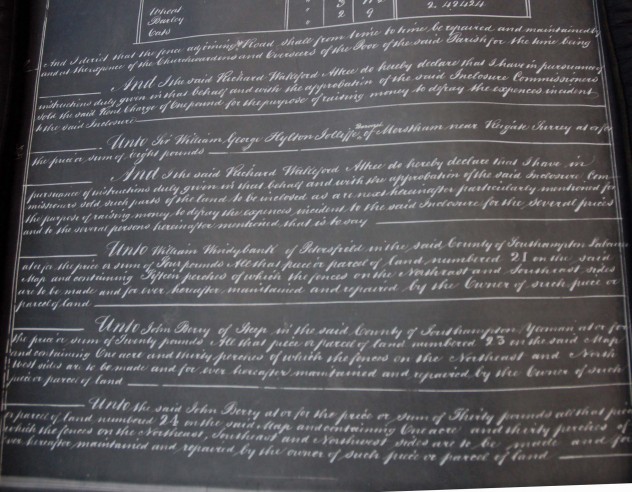 Wheat
Barley
Oats
2. 42424
And I direct that the fence adjoining the Road shall from time to time be repaired and maintained by
and at the expence of the Churchwardens and Overseers of the Poor of the said Parish for the time being
And I the said Richard Watteford Attree do hereby declare that I have in pursuance of
instructions duly given in that behalf and with the approbation of the said Inclosure Commissioners
sold the said Rent Charge of One pound for the purpose of raising money to defray the expences incident
to the said Inclosure
Unto Sir William George Hylton Jolliffe Baronet of Merstham near Reigate Surrey at or for
the price or sum of Eight pounds
And I the said Richard Watteford Attree do hereby declare that I have in
pursuance of instructions duly given in that behalf and with the approbation of the said Inclosure Com
missioners sold such parts of the land to be inclosed as are next hereinafter particularly mentioned for
the purpose of raising money to defray the expences incident to the said Inclosure for the several prices
and to the several persons hereinafter mentioned that is to say
Unto William of Petersfield in the said County of Southampton
at or for the price or sum of Four pounds All that piece or parcel of land numbered 21 on the said
Map and containing Fifteen perches of which the fences on the Northeast and Southeast sides
are to be made and for ever hereafter maintained and repaired by the Owner of such piece or
parcel of land
Unto John Berry of Steep in the said County of Southampton Yeoman at or for
the price or sum of Twenty pounds All that piece or parcel of land numbered 23 on the said Map
and containing One acre and thirty perches of which the fences on the Northeast and North
West sides are to be made and for ever hereafter maintained and repaired by the Owner of such
piece or parcel of land
Unto the said John Berry at or for the price or sum of Thirty pounds all that piece
or parcel of land numbered 24 on the said Map and containing One acre and thirty perches of
which the fences on the Northeast, Southeast and Northwest sides are to be made and for
ever hereafter maintained and repaired by the owner of such piece or parcel of land